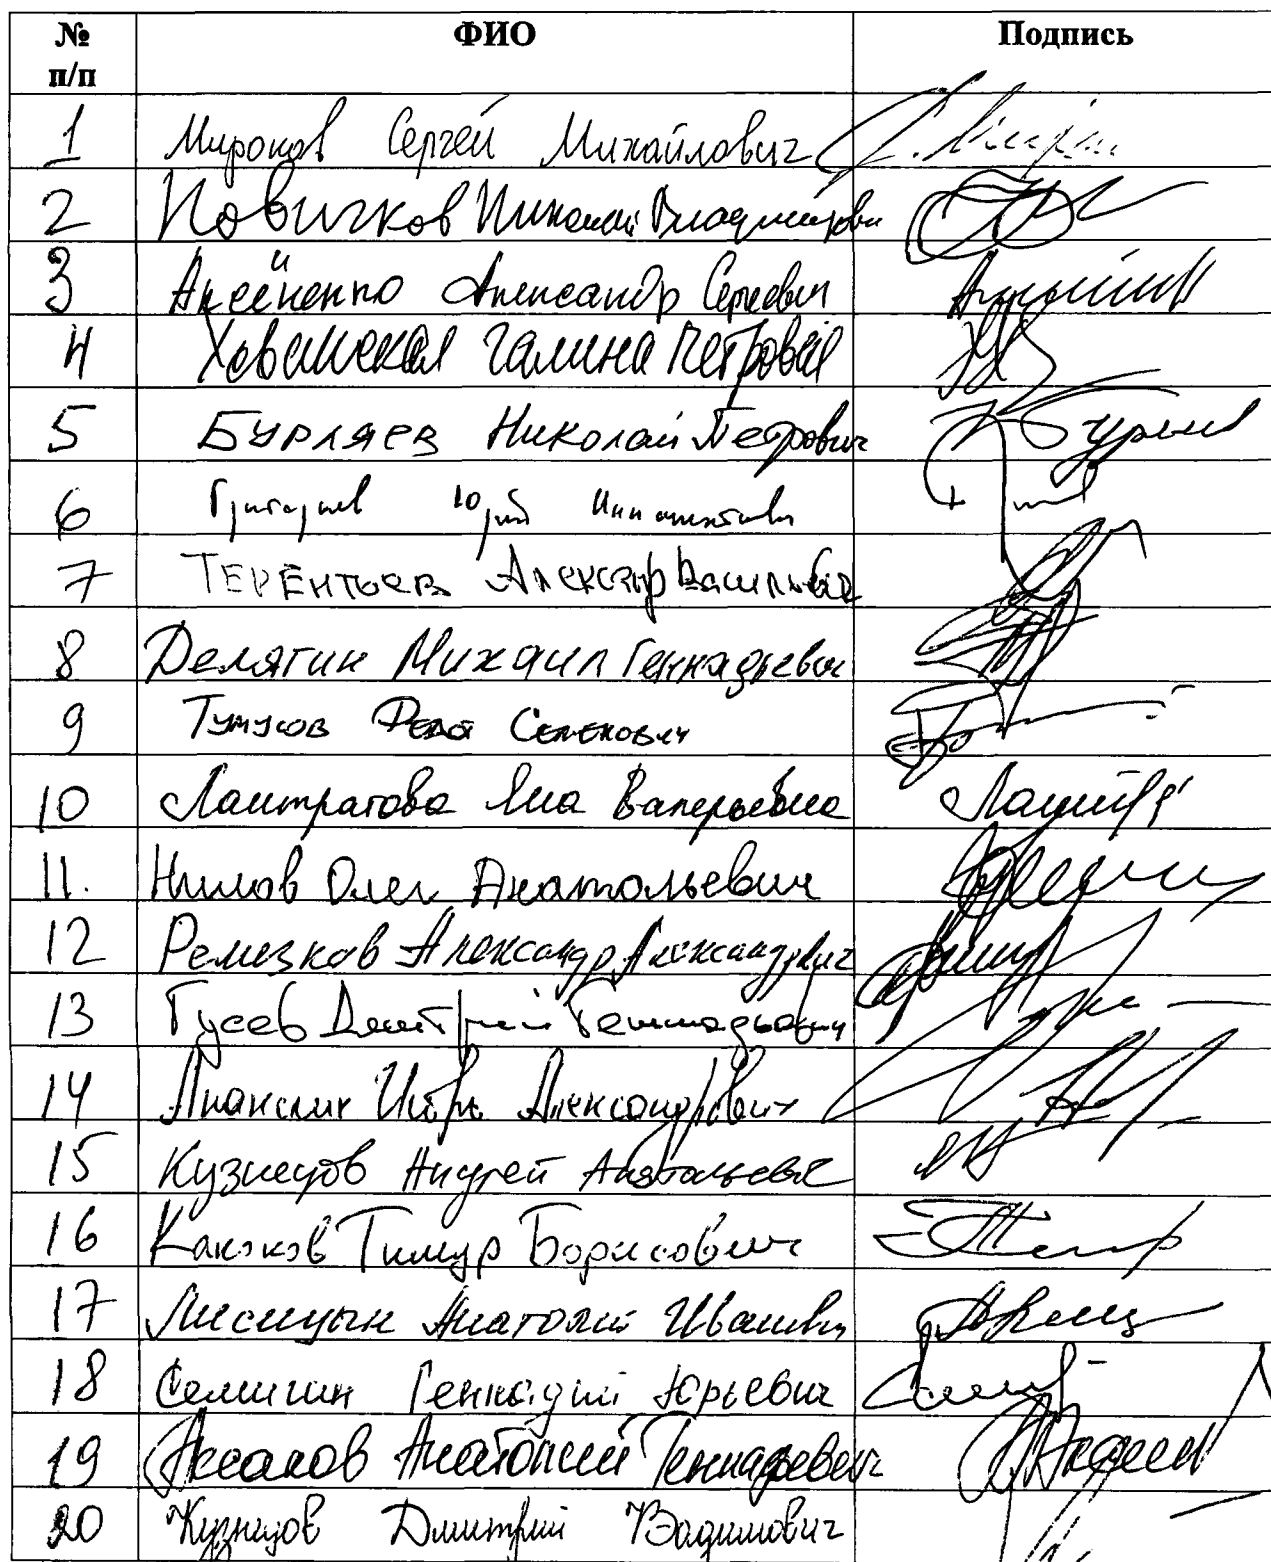 № п/п ФИО Подпись
1 Миронов Сергей Михайлович
2 Новичков Николай Владимирови
3 Аксёненко Александр Сергеевич
4 Хованская Галина Петровна
5 Бурляев Николай Петрович
6 Григорьев Юрий Иннокентьевич
7 Терентьев Александр Васильевич
8 Делягин Михаил Геннадьевич
9 Тумусов Федот Семенович
10 Лантратова Яна Валерьевна
11. Нилов Олег Анатольевич
12 Ремезков Александр Александрович
13 Гусев Дмитрий Геннадьевич
14 Ананских Игорь Александрович
15 Кузнецов Андрей Анатольевич
16 Каноков Тимур Борисович
17 Лисицын Анатолий Иванович
18 Семигин Геннадий Юрьевич
19 Аксаков Анатолий Геннадьевич
20 Кузнецов Дмитрий Вадимович